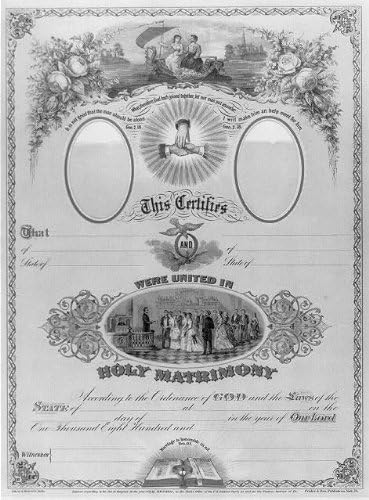 What therefore God hath joined together let not man put asunder.
It is not good that the man should be alone
Gen. 2. 18.
I will make him an help meet for him.
Gen. 2. 18.
This Certifies
That
AND
of
of
State of
State of
WERE UNITED IN
HOLY MATRIMONY
According to the Ordinance of GOD and the Laws of the
STATE of at on the
day of in the year of Our Lord
One Thousand Eight Hundred and
Witnesses
Marriage is honorable in all